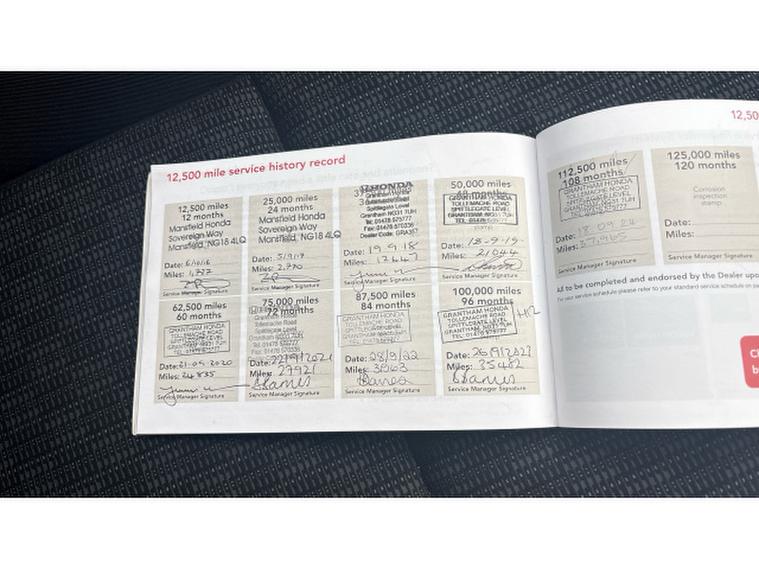 12,500 mile service history record
12,500 miles
12 months
Mansfield Honda
Sovereign Way
Mansfield, NG18 4LQ
Date: 6/10/16
Miles: 1,777
Service Manager Signature
25,000 miles
24 months
Mansfield Honda
Sovereign Way
Mansfield, NG18 4LQ
Date: 5/9/17
Miles: 2,770
Service Manager Signature
HONDA
Grantham Honda
Spittlegate Level
Grantham NG31 7UH
Tel: 01476 575777
Fax: 01476 570336
Date: 19.9.18
Miles: 12447
Service Manager Signature
50,000 miles
48 months
GRANTHAM HONDA
TOLLEMACHE ROAD
SPITTLEGATE LEVEL
GRANTHAM, NG31 7UH
Date: 18-9-19
Miles: 21044
Service Manager Signature
62,500 miles
60 months
GRANTHAM HONDA
TOLLEMACHE ROAD
SPITTLEGATE LEVEL
GRANTHAM, NG31 7UH
TEL: 01476 575777
Date: 21-09-2020
Miles: 24835
Service Manager Signature
75,000 miles
72 months
Grantham Honda
Tollemache Road
Spittlegate Level
Grantham NG31 7UH
Tel: 01476 575777
Fax: 01476 570336
Date: 22/9/2021
Miles: 27921
Service Manager Signature
87,500 miles
84 months
GRANTHAM HONDA
TOLLEMACHE ROAD
SPITTLEGATE LEVEL
GRANTHAM, NG31 7UH
Date: 28/9/22
Miles:
Service Manager Signature
100,000 miles
96 months
GRANTHAM HONDA
TOLLEMACHE ROAD
SPITTLEGATE LEVEL
GRANTHAM, NG31 7UH
Date: 26/9/2023
Miles: 35402
Service Manager Signature
12,50
112,500 miles
108 months
GRANTHAM HONDA
TOLLEMACHE ROAD
SPITTLEGATE LEVEL
GRANTHAM, NG31 7UH
Date: 18 09 24
Miles: 37,965
Service Manager Signature
125,000 miles
120 months
Corrosion
inspection
stamp
Date:
Miles:
Service Manager Signature
All to be completed and endorsed by the Dealer upo
For your service schedule please refer to your standard service schedule on pa